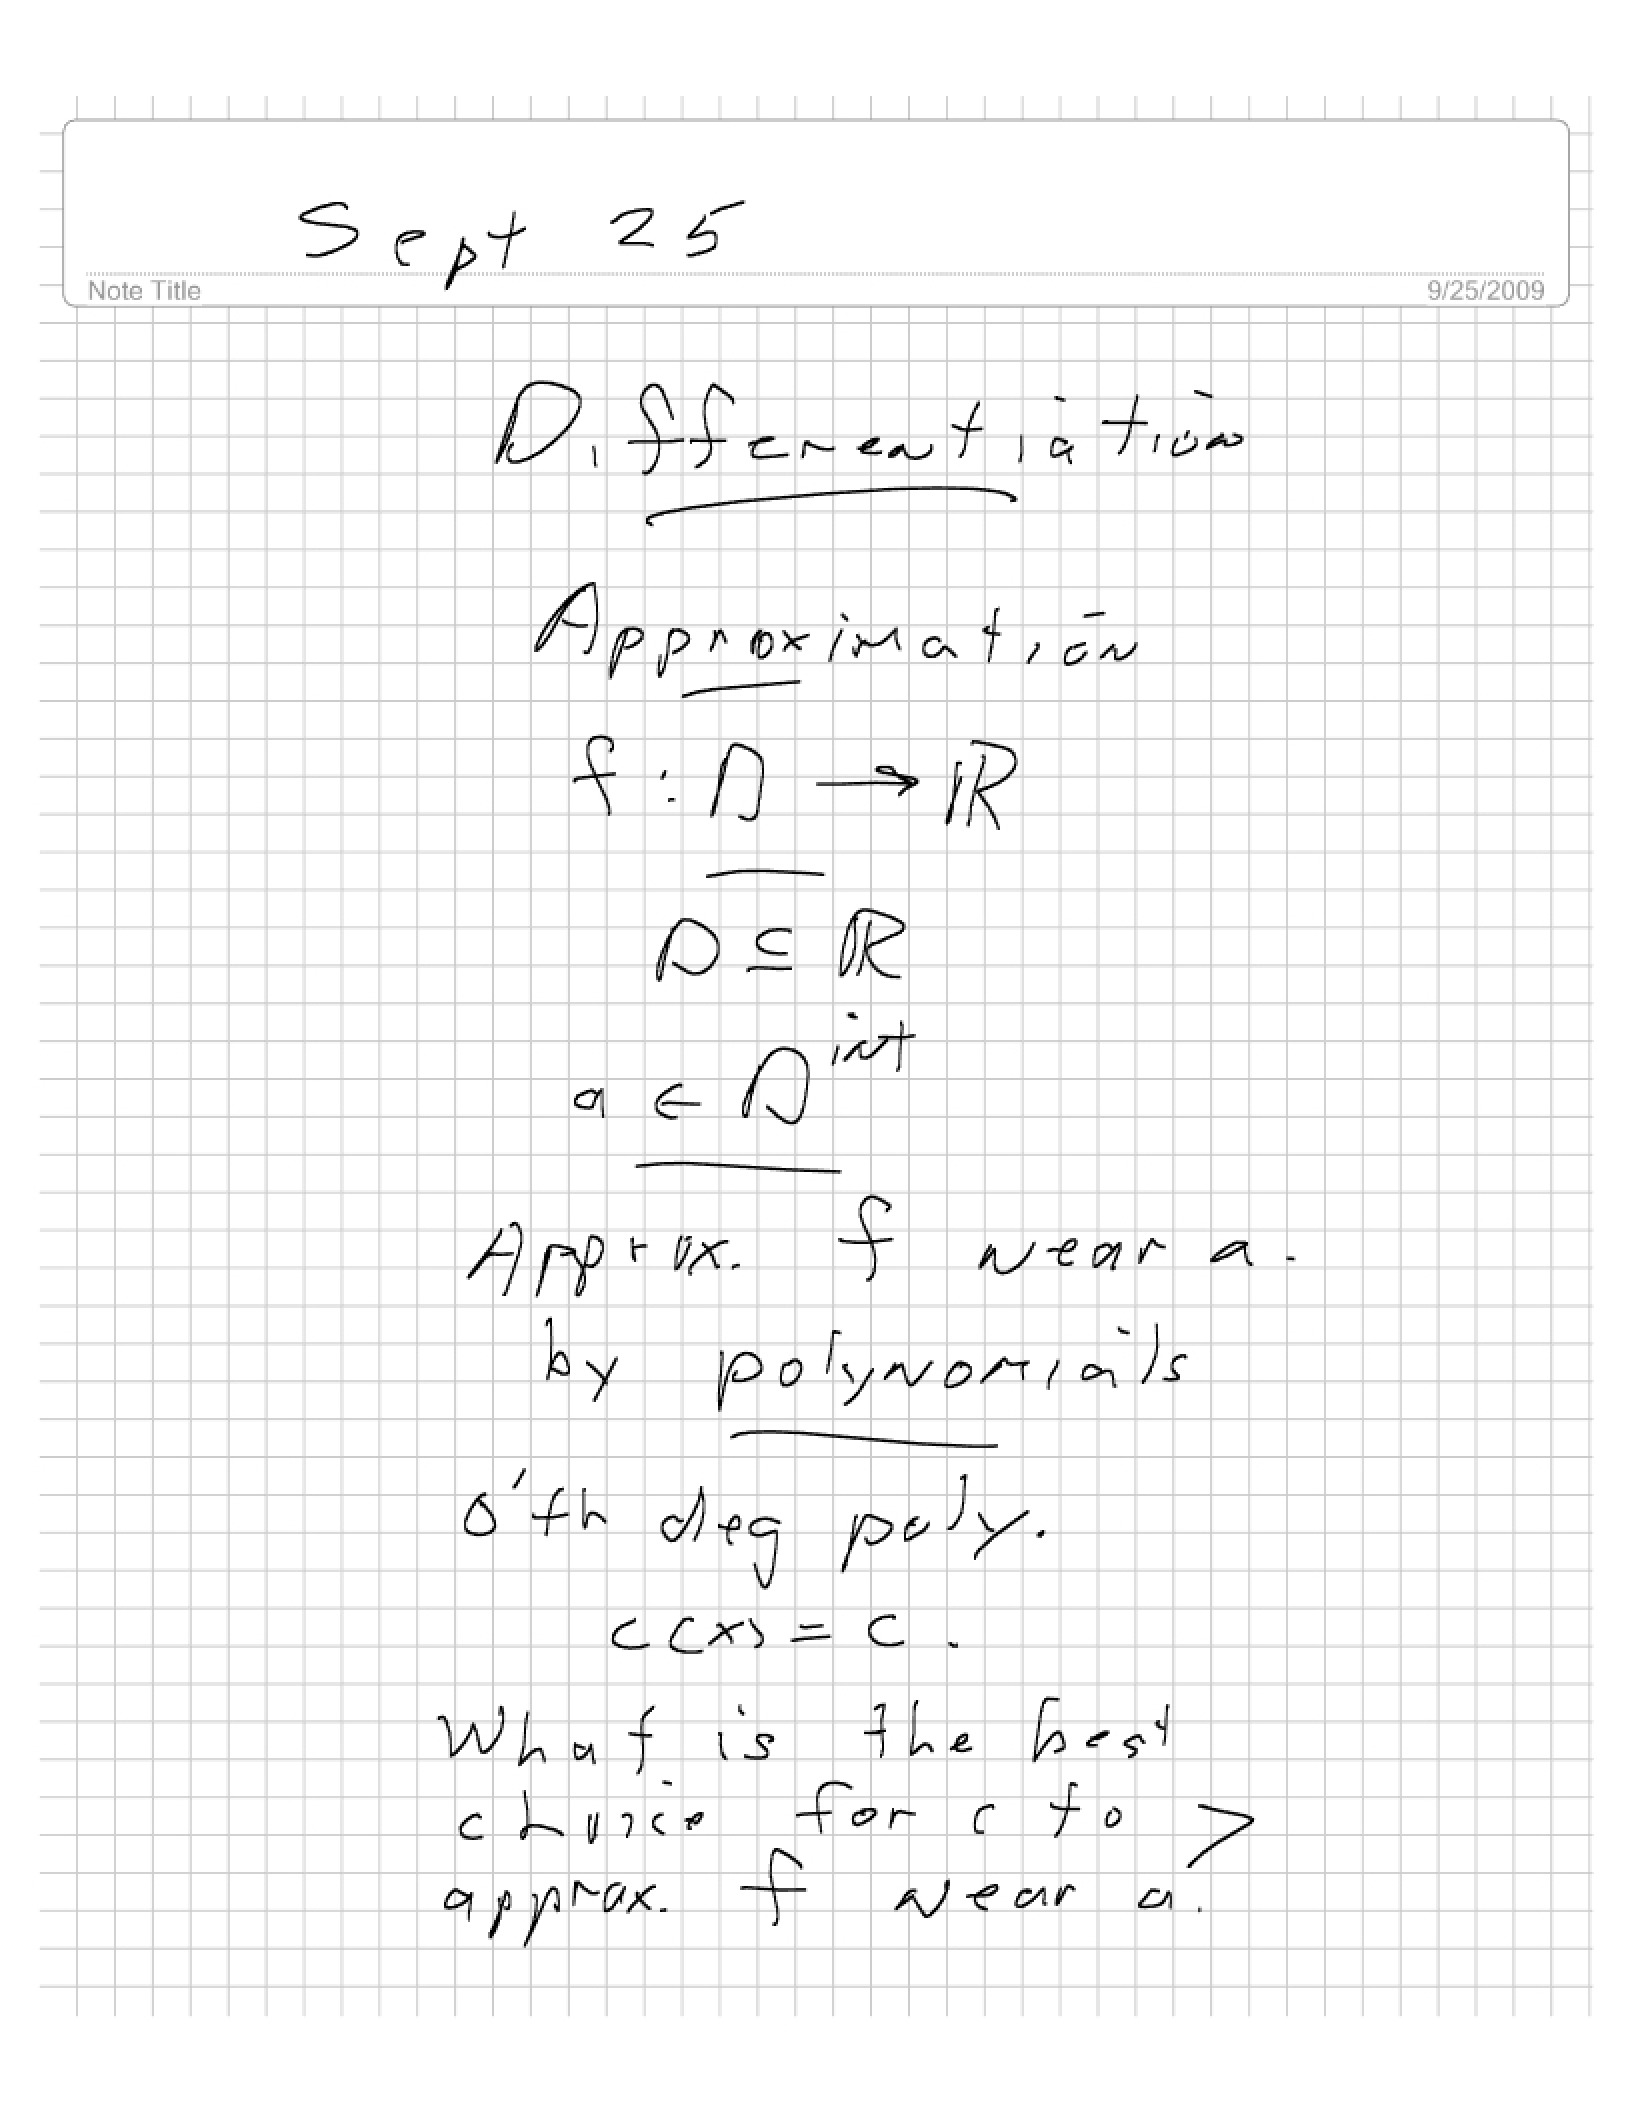 Sept 25
Note Title
9/25/2009
Differentiation
Approximation
f : D → ℝ
D ⊆ ℝ
a ∈ D^int
Approx. f near a.
by polynomials
0'th deg poly.
c(x) = c.
What is the best
choice for c to
approx. f near a?